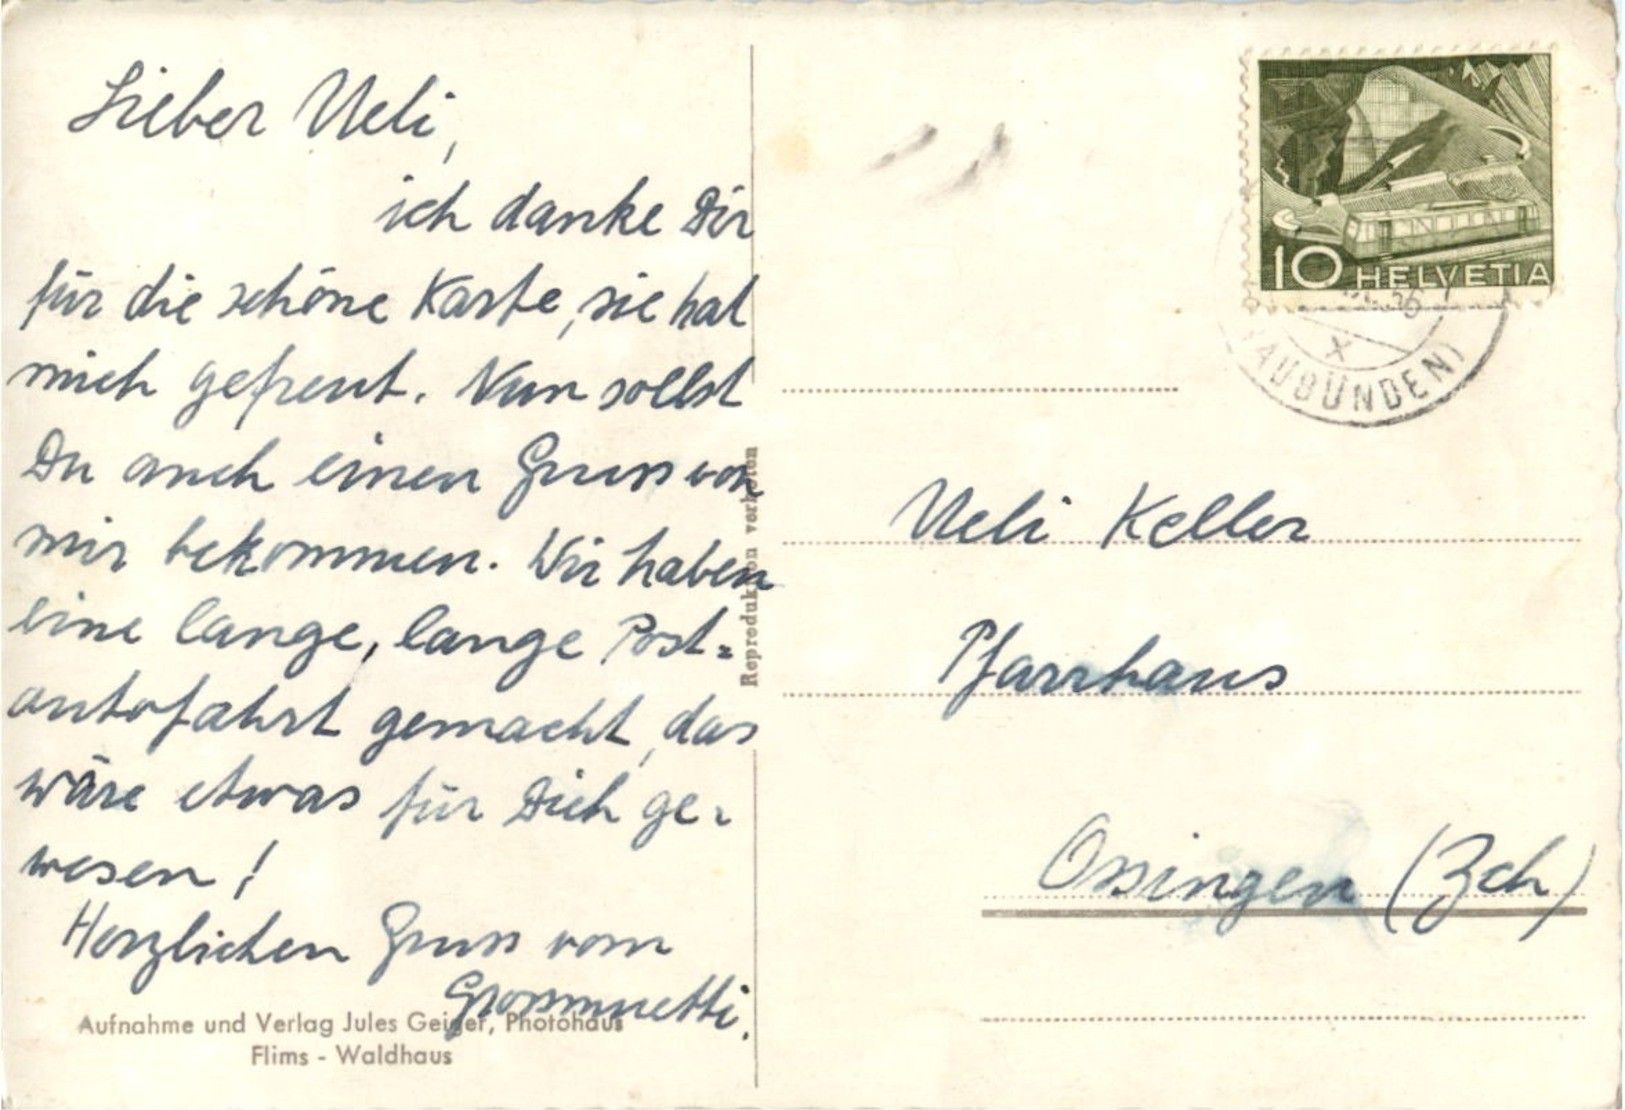 Lieber Ueli,
ich danke Dir
für die schöne Karte, sie hat
mich gefreut. Nun sollst
Du auch einen Gruss von
mir bekommen. Wir haben
eine lange, lange Post=
autofahrt gemacht, das
wäre etwas für Dich ge-
wesen!
Herzlichen Gruss vom
Grossmuetti.
Aufnahme und Verlag Jules Geiger, Photohaus
Flims - Waldhaus
Reproduktion verboten
10 HELVETIA
56
Ueli Keller
Pfarrhaus
Ossingen (Zch)